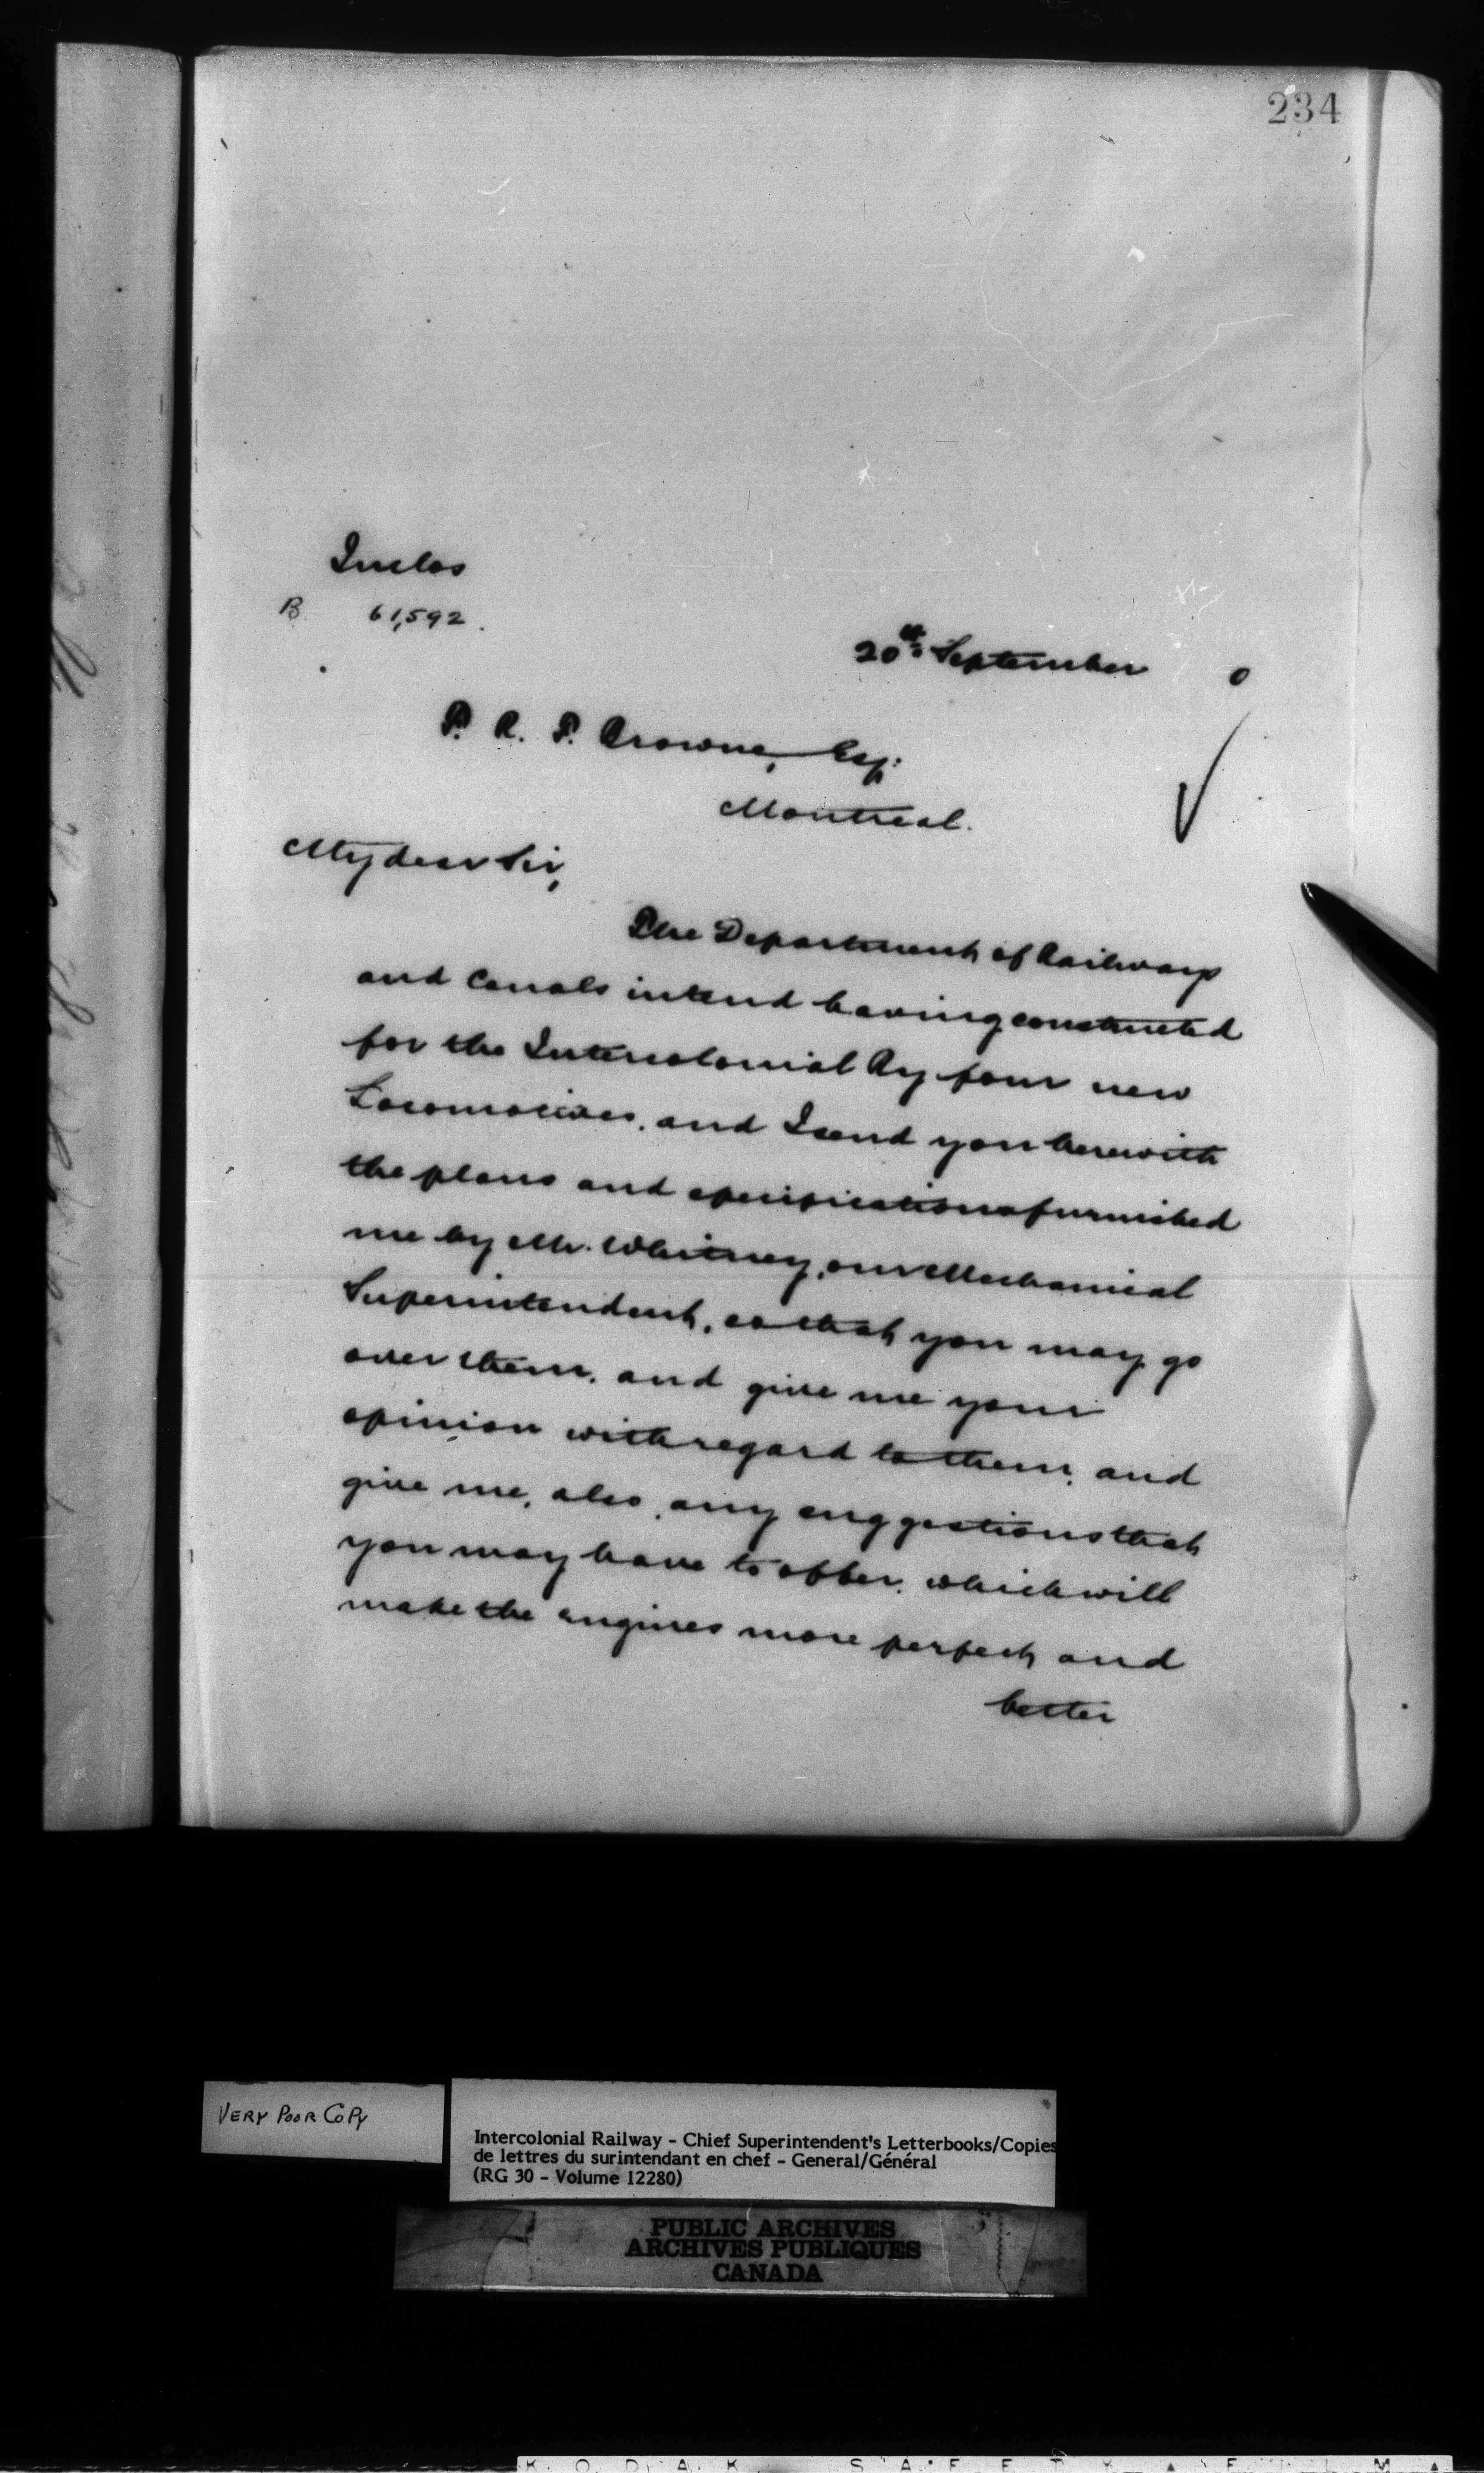 234
Inclos
B. 61,592.
20th September 0
P. R. P. Browne, Esq:
Montreal.
My dear Sir,
The Department of Railways
and Canals intend having constructed
for the Intercolonial Ry four new
Locomotives, and I send you herewith
the plans and specifications furnished
me by Mr. Whitney, our Mechanical
Superintendent, so that you may go
over them, and give me your
opinion with regard to them, and
give me, also, any suggestions that
you may have to offer, which will
make the engines more perfect and
better
VERY POOR COPY
Intercolonial Railway - Chief Superintendent's Letterbooks/Copies
de lettres du surintendant en chef - General/Général
(RG 30 - Volume 12280)
PUBLIC ARCHIVES
ARCHIVES PUBLIQUES
CANADA
KODAK SAFETY FILM